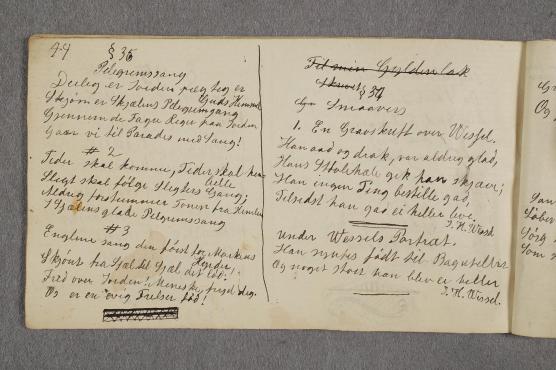 44 § 36
Pelegrimssang
Deilig er Jorden prægteg er
Guds Himmel
Skjøn er Sjælens Pelegrimgang
Gjennem de Fagre Riger paa Jorden
Gaar vi til Paradis med Sang!
# 2
Tider skal komme, Tider skal hen-
rulle
Slegt skal følge Slegters Gang;
Aldrig forstummer Tonen fra Himlen
I Sjælens glade Pelgrimssang
# 3
Englene sang den først for Markens
Hyrder;
Skjønt fra Sjæl til Sjæl det lød:
Fred over Jorden, Menesk, fryd deg.
Os er en evig Frelser fød!
Til min Gyldenlak
§ 37
Smaavers
1. En Gravskrift over Wessel.
Han aad og drak, var aldrig glad,
Hans Støvlhæle gik han skjæve;
Han ingen Ting bestille gad,
Tilsidst han gad ei heller leve.
J. H. Wessel
Under Wessels Portræt.
Han syntes født til Bagateller
Og noget stort han blev ei heller
J. H. Wessel.